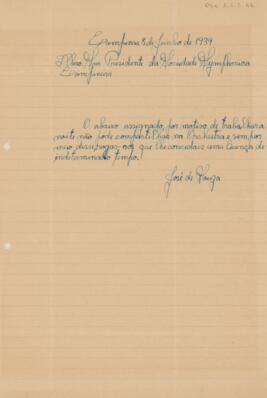 Campinas, 8 de Junho de 1939
Illmo. Snr. Presidente da Sociedade Symphonica
Campineira
O abaixo assignado, por motivo de trabalhar a
noite não pode compartilhar na Orchestra e sem por
isso roga-vos que lhe concedais uma licença de
indeterminado tempo.
José de Souza